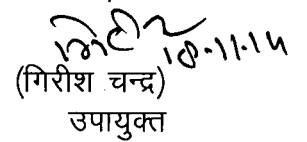 18.11.14
(गिरीश चन्द्र)
उपायुक्त